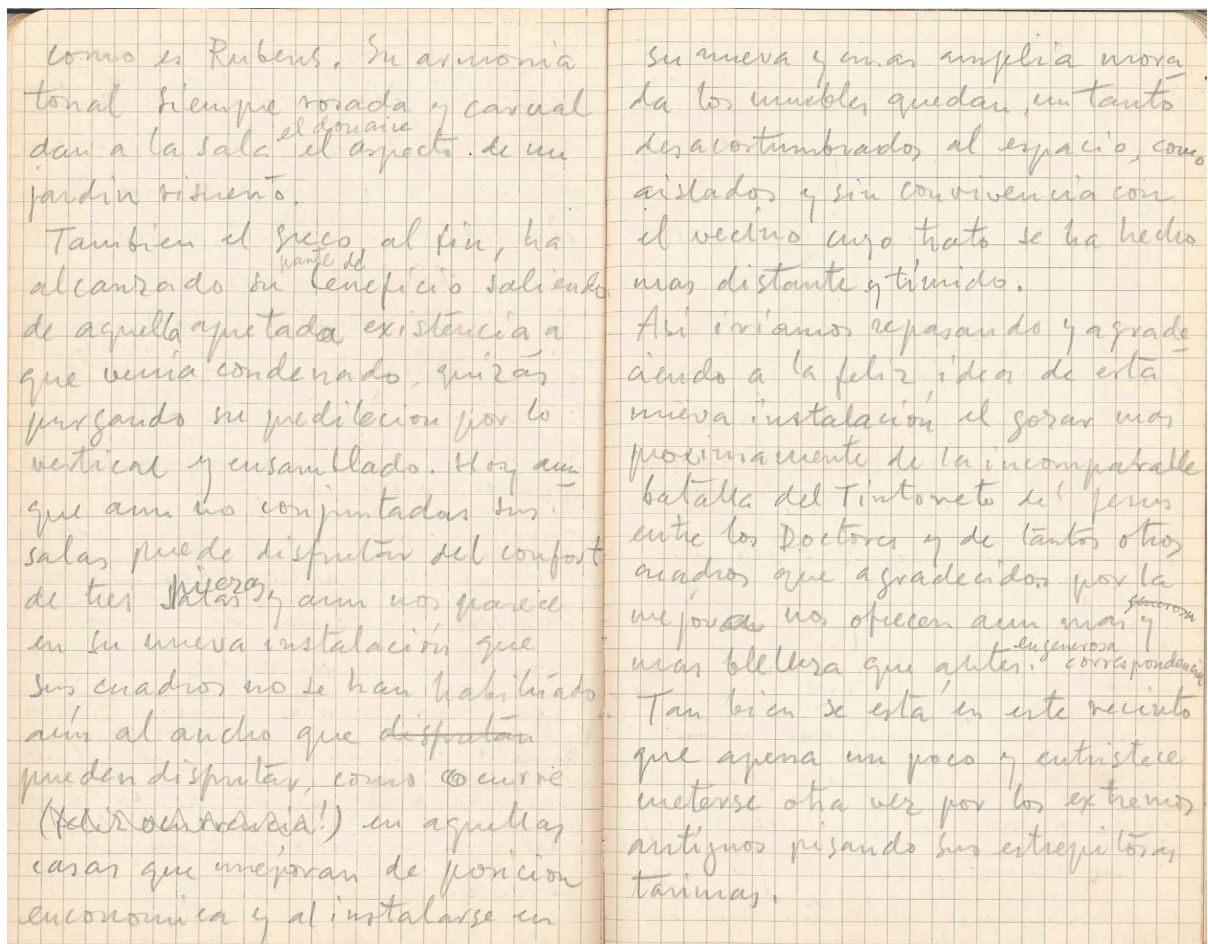 como es Rubens. Su armonia
tonal siempre rosada y carnal
el donaire
dan a la sala el aspecto de un
jardin risueño.
Tambien el greco, al fin, ha
parte de
alcanzado su beneficio saliendo
de aquella apretada existencia a
que venia condenado, quizás
purgando su predilecion por lo
vertical y ensamblado. Hoy aun
que aun no conjuntadas sus
salas puede disfrutar del confort
de tres piezas y aun nos parece
en su nueva instalación que
sus cuadros no se han habituado
aún al ancho que disfrutan
pueden disfrutar, como ocurre
(feliz ocurrencia!) en aquellas
casas que mejoran de posicion
enconomica y al instalarse en
su nueva y mas amplia mora
da los muebles quedan, un tanto
desacostumbrados al espacio, como
aislados y sin convivencia con
el vecino cuyo trato se ha hecho
mas distante y tímido.
Asi iriamos repasando y agrade
ciendo a la feliz idea de esta
nueva instalación el gozar mas
proximamente de la incomparable
batalla del Tintoreto del Jesus
entre los Doctores y de tantos otros
cuadros que agradecidos por la
generosa
mejora nos ofrecen aun mas y
en generosa
mas belleza que antes. correspondencia
Tan bien se está en este recinto
que apena un poco y entristece
meterse otra vez por los extremos
antiguos pisando sus estrepitosas
tarimas.